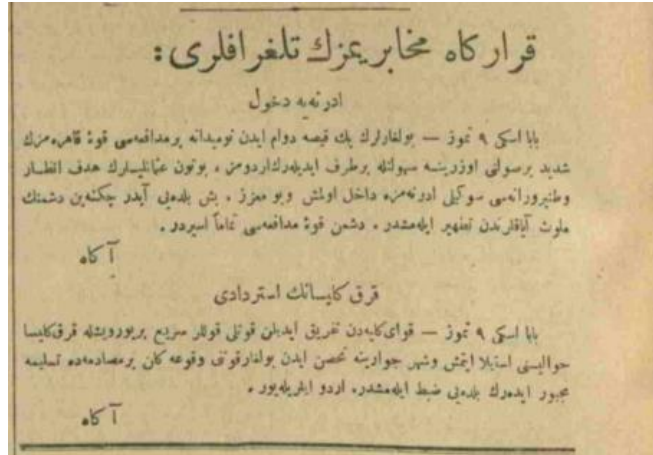 قرارگاه مخابريمزك تلغرافلرى :
ادرنه‌يه دخول
بابا اسكى ٩ تموز — بولغارلرك پك قيصه دوام ايدن نوميدانه بر مدافعه‌سى قوۀ قاهره‌مزك
شديد بر صولتى اوزرينه سهولتله بر طرف ايديله‌رك اردومز ، بوتون عثمانليلرك هدف انظار
وطنپرورانه‌سى سوكيلى ادرنه‌مزه داخل اولمش و بو معزز ، بش بلده‌يى آيدر چكنه‌ين دشمنك
ملوث آياقلرندن تطهير ايله‌مشدر . دشمن قوۀ مدافعه‌سى تماماً اسيردر .
آ كاه
قرق كليسانك استردادى
بابا اسكى ٩ تموز — قواى كليه‌دن تفريق ايديلن قوتلى قوللر سريع بر يورويشله قرق كليسا
حواليسنى استيلا ايتمش و شهر جوارينه تحصن ايدن بولغار قوتنى وقوعه كلن بر مصادمه‌ده تسليمه
مجبور ايده‌رك بلده‌يى ضبط ايله‌مشدر . اردو ايلريله‌يور .
آ كاه